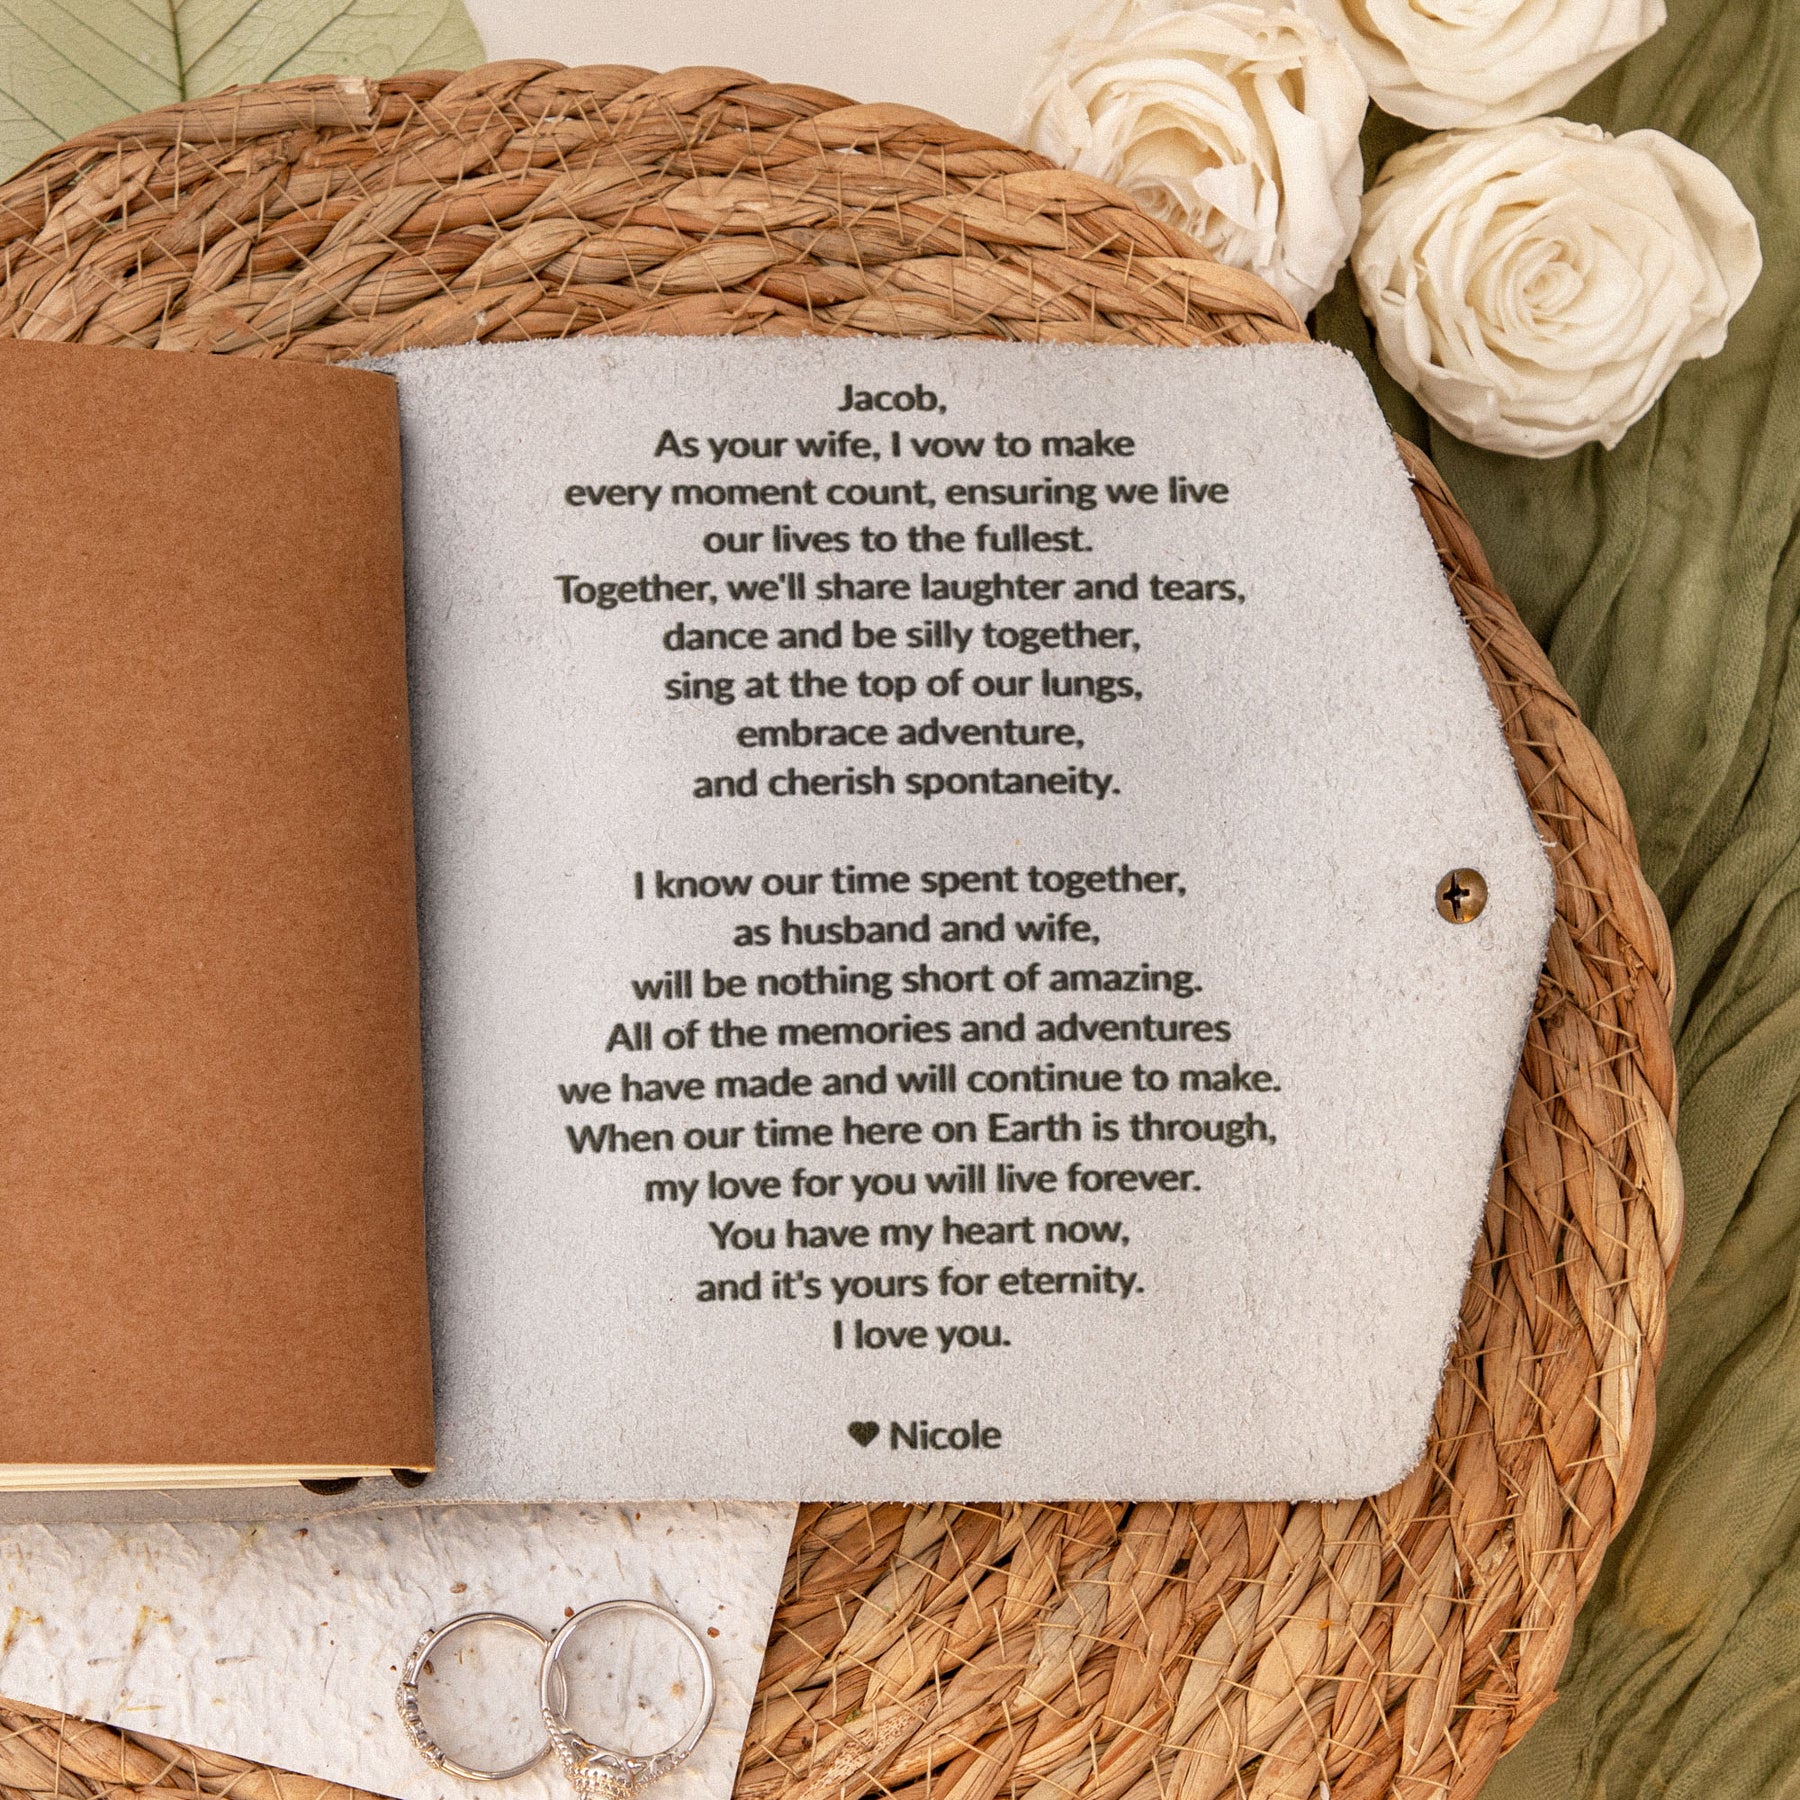 Jacob,
As your wife, I vow to make
every moment count, ensuring we live
our lives to the fullest.
Together, we'll share laughter and tears,
dance and be silly together,
sing at the top of our lungs,
embrace adventure,
and cherish spontaneity.
I know our time spent together,
as husband and wife,
will be nothing short of amazing.
All of the memories and adventures
we have made and will continue to make.
When our time here on Earth is through,
my love for you will live forever.
You have my heart now,
and it's yours for eternity.
I love you.
♥ Nicole